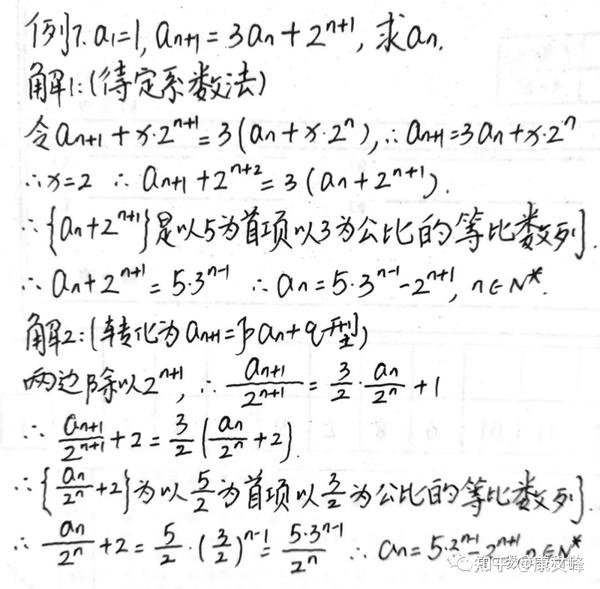 例7. a₁=1, aₙ₊₁=3aₙ+2ⁿ⁺¹, 求aₙ.
解1:(待定系数法)
令aₙ₊₁+x·2ⁿ⁺¹=3(aₙ+x·2ⁿ), ∴aₙ₊₁=3aₙ+x·2ⁿ
∴x=2 ∴aₙ₊₁+2ⁿ⁺²=3(aₙ+2ⁿ⁺¹).
∴{aₙ+2ⁿ⁺¹}是以5为首项以3为公比的等比数列.
∴aₙ+2ⁿ⁺¹=5·3ⁿ⁻¹ ∴aₙ=5·3ⁿ⁻¹-2ⁿ⁺¹, n∈N*.
解2:(转化为aₙ₊₁=paₙ+q型)
两边除以2ⁿ⁺¹, ∴aₙ₊₁/2ⁿ⁺¹=3/2·aₙ/2ⁿ+1
∴aₙ₊₁/2ⁿ⁺¹+2=3/2(aₙ/2ⁿ+2).
∴{aₙ/2ⁿ+2}为以5/2为首项以3/2为公比的等比数列.
∴aₙ/2ⁿ+2=5/2·(3/2)ⁿ⁻¹=5·3ⁿ⁻¹/2ⁿ ∴aₙ=5·3ⁿ⁻¹-2ⁿ⁺¹ n∈N*
知乎 @康文峰